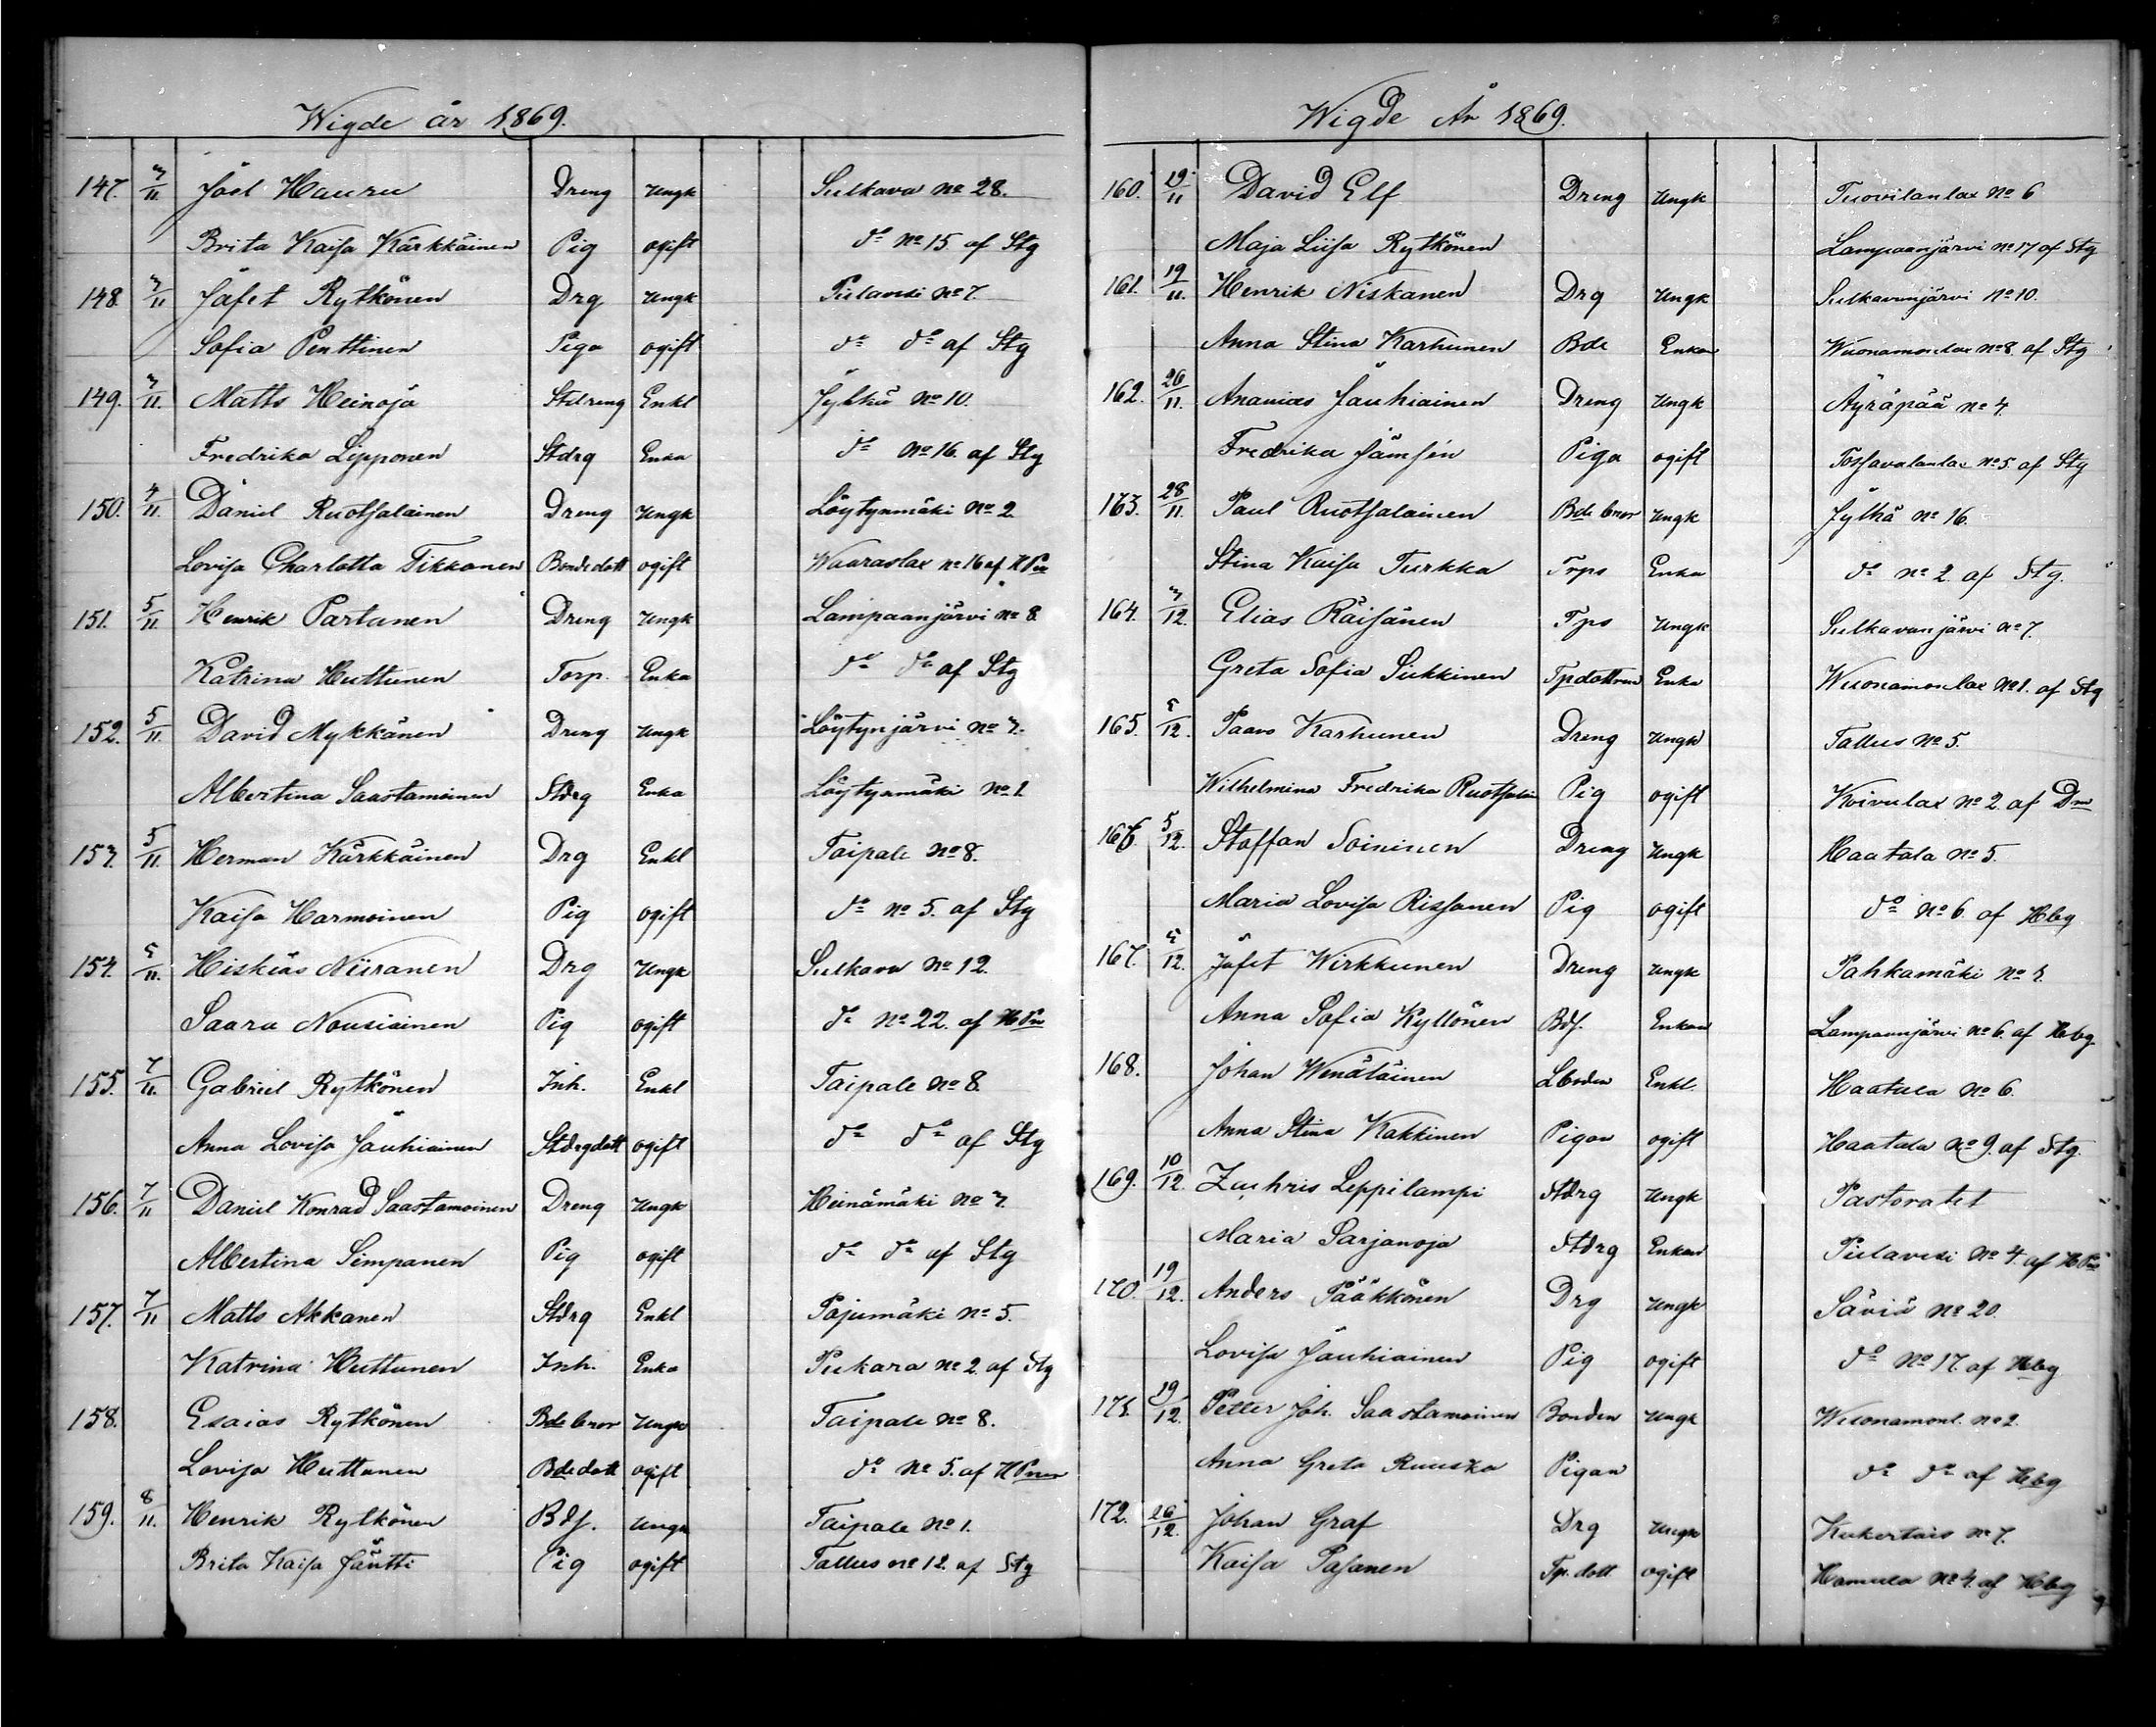 Wigde år 1869.
147. 3/11. Joel Hauru Dreng Ungk Sulkava No 28.
Brita Kaisa Kärkkäinen Pig ogift do No 15. af Stg
148. 3/11 Jafet Rytkönen Drg Ungk Pielavesi No 7.
Sofia Penttinen Piga ogift do do af Stg
149. 3/11. Matts Heinoja Stdreng Enkl Jylhä No 10.
Fredrika Lipponen Stdrg Enka do No 16. af Stg
150. 4/11. Daniel Ruotsalainen Dreng Ungk Löytynmäki No 2
Lovisa Charlotta Tikkanen Bondedott ogift Waaraslax No 16 af HPn
151. 5/11. Henrik Partanen Dreng Ungk Lampaanjärvi No 8
Katrina Huttunen Torp. Enka do do af Stg
152. 5/11. David Mykkänen Dreng Ungk Löytynjärvi No 3.
Albertina Saastamoinen Stdrg Enka Löytynmäki No 1.
153. 5/11. Herman Kärkkäinen Drg Enkl Taipale No 8.
Kaisa Harmoinen Pig ogift do No 5. af Stg
154. 5/11. Hiskias Niiranen Drg Ungk Sulkava No 12.
Saara Nousiainen Pig ogift do No 22. af HPn
155. 7/11. Gabriel Rytkönen Inh. Enkl Taipale No 8
Anna Lovisa Jauhiainen Stdrgdott ogift do do af Stg
156. 7/11 Daniel Konrad Saastamoinen Dreng Ungk Heinämäki No 3.
Albertina Simpanen Pig ogift do do af Stg
157. 7/11 Matts Akkanen Stdrg Enkl Pajumäki No 5.
Katrina Huttunen Inh. Enka Pukara No 2. af Stg
158. Esaias Rytkönen Bdebror Ungk Taipale No 8.
Lovisa Huttunen Bdedott ogift do No 5. af HPnen
159. 8/11. Henrik Rytkönen Bds. Ungk Taipale No 1.
Brita Kaisa Jäntti Pig ogift Tallus No 12. af Stg
Wigde År 1869.
160. 19/11 David Elf Dreng Ungk Tuovilanlax No 6
Maja Liisa Rytkönen Lampaanjärvi No 17 af Stg
161. 19/11. Henrik Niskanen Drg Ungk Sulkavanjärvi No 10.
Anna Stina Karhunen Bde Enkan Wuonamonlax No 8. af Stg
162. 26/11. Ananias Jauhiainen Dreng Ungk Äyräpää No 4.
Fredrika Jämsén Piga ogift Tossavalanlax No 5. af Stg
163. 28/11. Paul Ruotsalainen Bdebror Ungk Jylhä No 16.
Stina Kaisa Turkka Trps Enka do No 2. af Stg.
164. 3/12. Elias Räisänen Tps Ungk Sulkavanjärvi No 7.
Greta Sofia Sikkinen Tpdottren Enka Wuonamonlax No 1. af Stg
165. 5/12. Paavo Karhunen Dreng Ungk Tallus No 5.
Wilhelmina Fredrika Ruotsalain Pig ogift Koivulax No 2. af Dn
166. 5/12. Staffan Soininen Dreng Ungk Haatala No 5.
Maria Lovisa Rissanen Pig ogift do No 6. af Hbg
167. 5/12. Jafet Wirkkunen Dreng Ungk Pahkamäki No 1.
Anna Sofia Kyllönen Bds. Enkan Lampaanjärvi No 6. af Hbg.
168. Johan Wenäläinen Lboden Enkl. Haatala No 6.
Anna Stina Kakkinen Pigan ogift Haatala No 9. af Stg.
169. 10/12. Zachris Leppilampi Stdrg Ungk Pastoratet
Maria Sarjanoja Stdrg Enkan Pielavesi No 4. af HPn
170. 19/12. Anders Pääkkönen Drg Ungk Säviä No 20.
Lovisa Jauhiainen Pig ogift do No 17. af Hbg
171. 19/12. Petter Joh. Saastamoinen Bonden Ungk Wuonamonl. No 2.
Anna Greta Ruuska Pigan do do af Hbg
172. 26/12. Johan Graf Drg Ungk Kukertais No 7.
Kaisa Pasanen Tp.dott ogift Hamula No 4. af Hbg